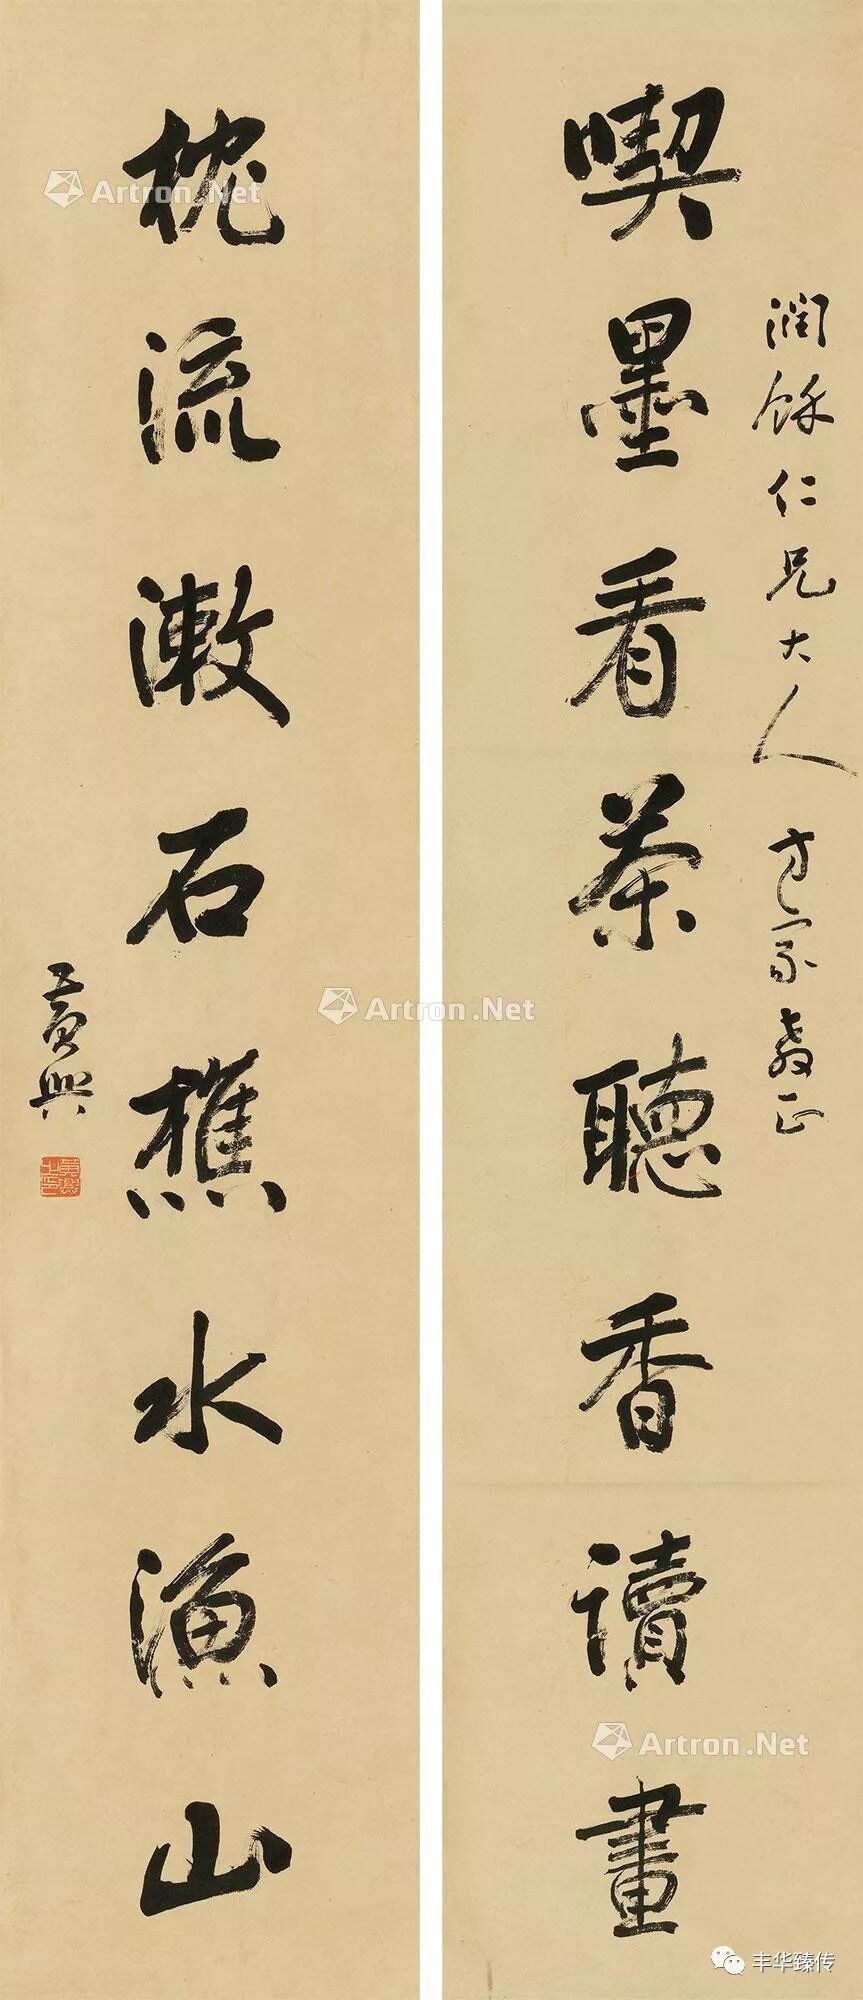 潤餘仁兄大人 方家教正
喫墨看茶聽香讀畫
枕流漱石樵水漁山
黃興
黃興之印
Artron.Net
Artron.Net
Artron.Net
丰华臻传